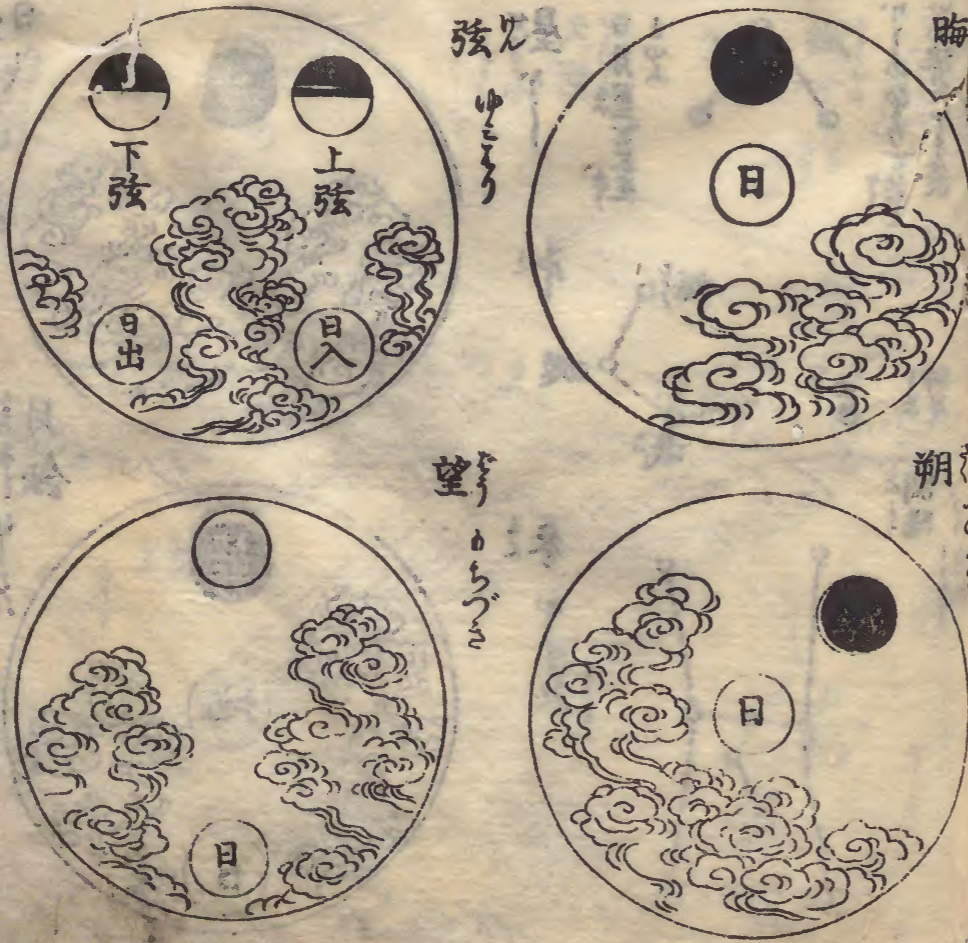 晦
日
弦 げん
ゆみはり
上弦
下弦
日入
日出
朔
日
望 ぼう
もちづき
日